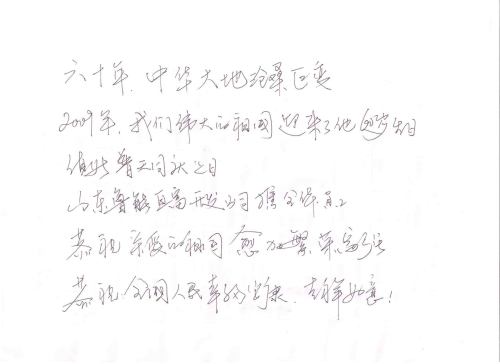 六十年，中华大地沧桑巨变
2009年，我们伟大的祖国迎来了他60岁生日
值此普天同庆之日
山东鲁能 开发公司携全体员工
恭祝亲爱的祖国愈加繁荣富强
恭祝全国人民幸福安康，吉祥如意！